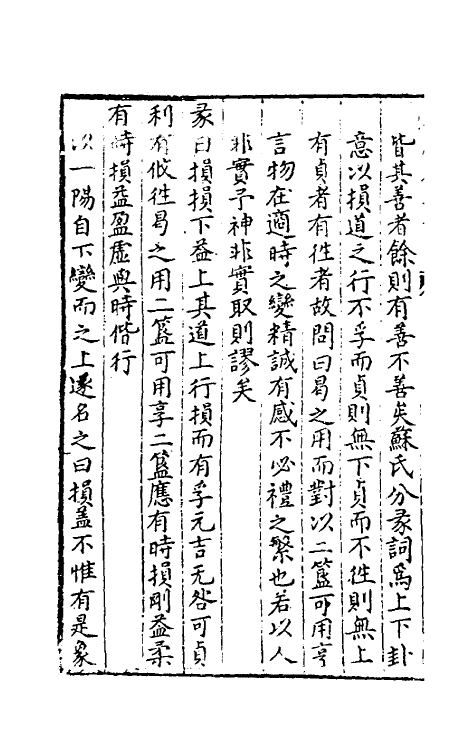 皆其善者餘則有善不善矣蘇氏分彖詞爲上下卦
意以損道之行不孚而貞則無下貞而不徃則無上
有貞者有徃者故問曰曷之用而對以二簋可用亨
言物在適時之變精誠有感不必禮之繁也若以人
非實予神非實取則謬矣
彖曰損損下益上其道上行損而有孚元吉无咎可貞
利有攸徃曷之用二簋可用享二簋應有時損剛益柔
有時損益盈虛與時偕行
以一陽自下變而之上遂名之曰損蓋不惟有是象